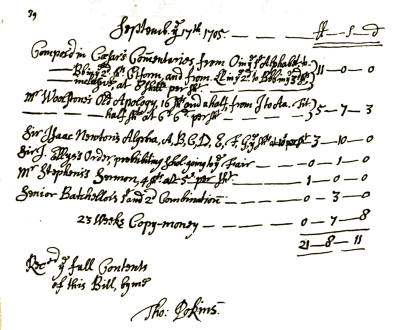 39
Septemb. yͤ 17th, 1705. — — — ₶ — S — d
Compos'd in Cæsar's Comentaries, from O in yͤ 1st Alphabet to
Bb in yͤ 2d. 1st. Form, and from in yͤ 2 to Bbb in yͤ
at 8 Shill. per 11 — 0 — 0
Mr Wootston's Old Apology, 16 shts and a half, from I to Aa. Tit.
half sht. at 6s. 6d per sht — 5 — 7 — 3
Sir Isaac Newton's Algebra, A, B, C, D, E, F, G yͤ 1st at 10s per sht — 3 — 10 — 0
Sir J. Ellys's Order, prohibiting Schol. going by Fair — 0 — 1 — 0
Mr Stephens's Sermon, 4 shts. at 5s per sht — 1 — 0 — 0
Senior Batchellors 1st and 2d Combination — — 0 — 3 — 0
23 Weeks Copy-money — — — 0 — 7 — 8
21 — 8 — 11
Rec'ed yͤ full Contents
of this Bill, by me
Tho: Pokins.